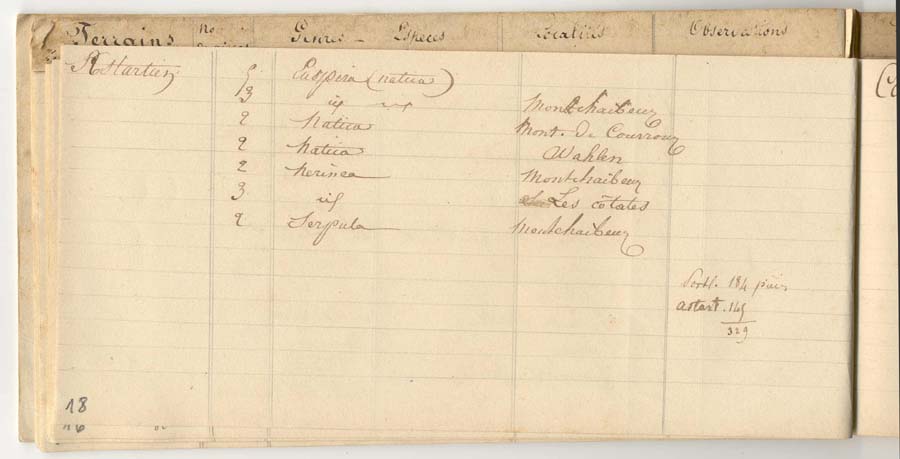 Terrains Genres - Espèces Localités Observations
Astartien 5 Euspira (natica)
3 id id Montchaibeux
2 Natica Mont. de Courroux
2 Natica Wahlen
2 Nerinea Montchaibeux
3 id Les côtates
2 Serpula Montchaibeux
Portl. 184
Astart. 145
329
18